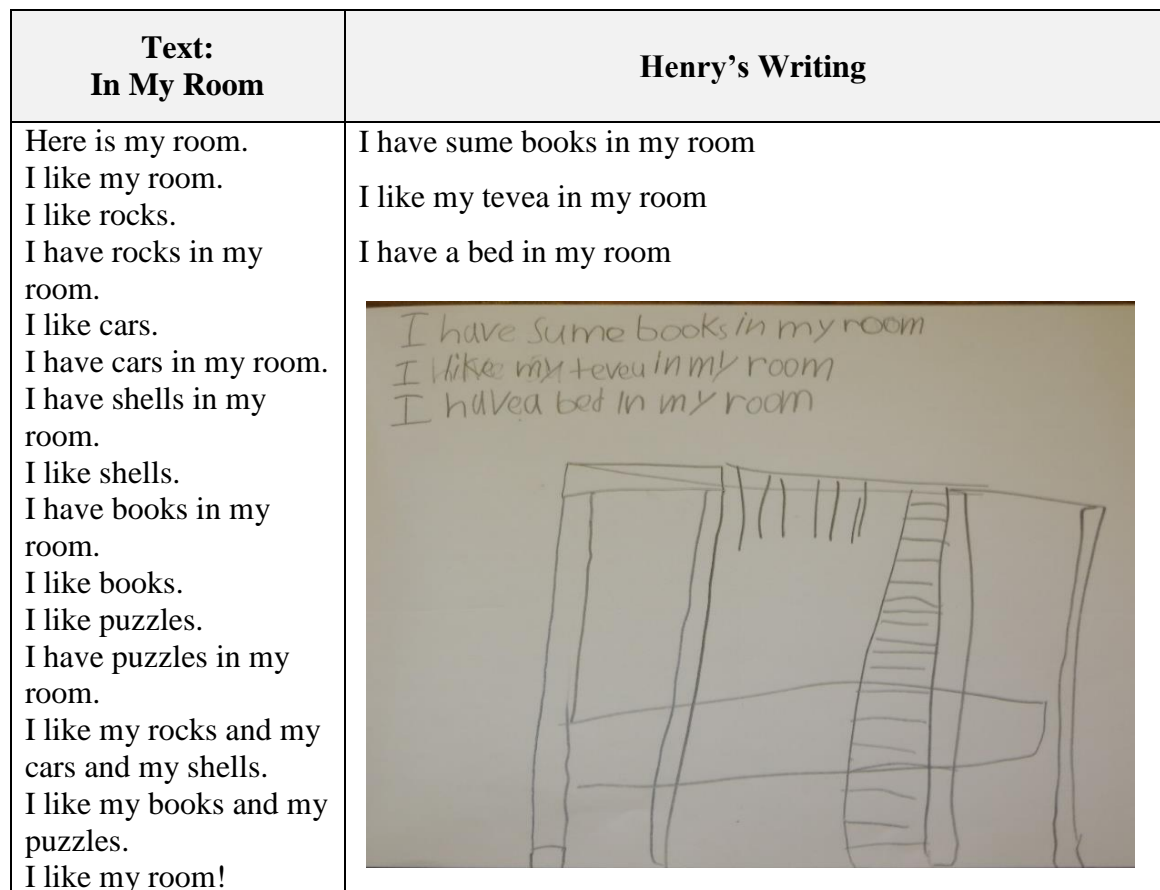 Text:
In My Room
Henry's Writing
Here is my room.
I like my room.
I like rocks.
I have rocks in my
room.
I like cars.
I have cars in my room.
I have shells in my
room.
I like shells.
I have books in my
room.
I like books.
I like puzzles.
I have puzzles in my
room.
I like my rocks and my
cars and my shells.
I like my books and my
puzzles.
I like my room!
I have sume books in my room
I like my tevea in my room
I have a bed in my room
I have sume books in my room
I like my teveu in my room
I havea bed in my room